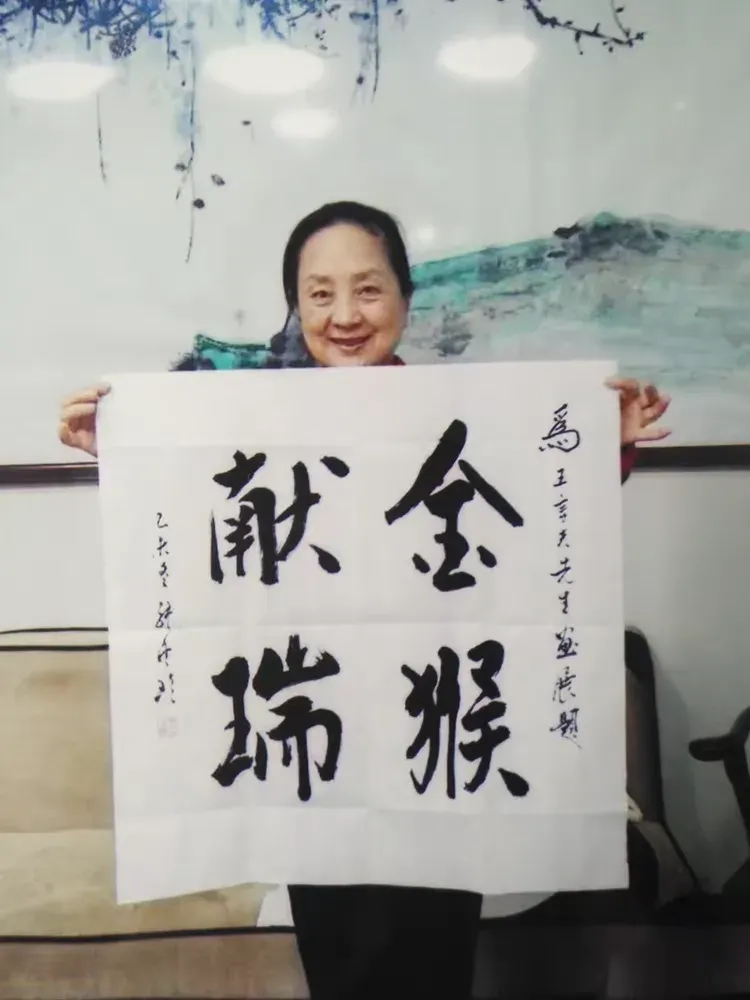 為王夫先生畫展題
金猴
献瑞
乙未冬